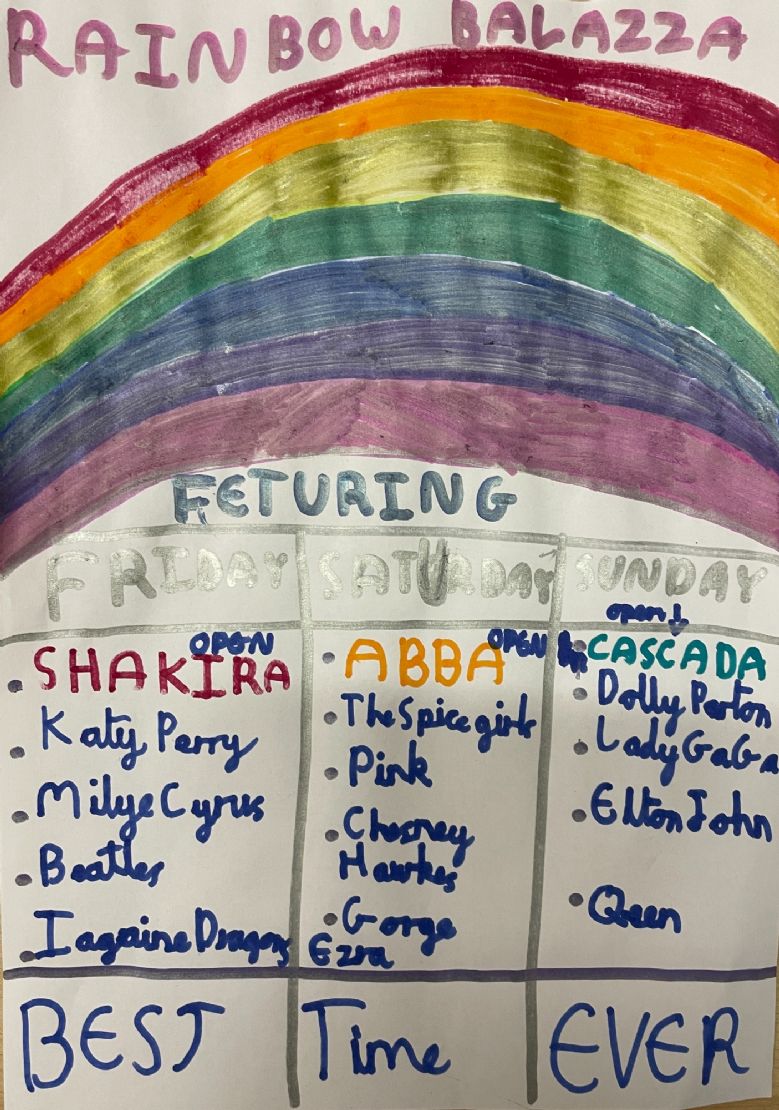 RAINBOW BALAZZA
FETURING
FRIDAY SATURDAY SUNDAY
OPEN
SHAKIRA
Katy Perry
Milye Cyrus
Beatles
Iagmine Dragons
OPEN
ABBA
The Spice girls
Pink
Chesney
Hawkes
Gorge
Ezra
open ↓
CASCADA
Dolly Parton
Lady GaGa
Elton John
Queen
BEST Time EVER